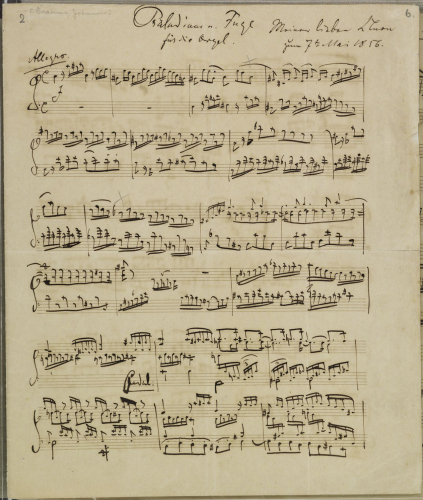 2
6.
Präludium u. Fuge
für die Orgel.
Meiner lieben Clara
zum 7t Mai 1856.
Allegro
f
Pedal